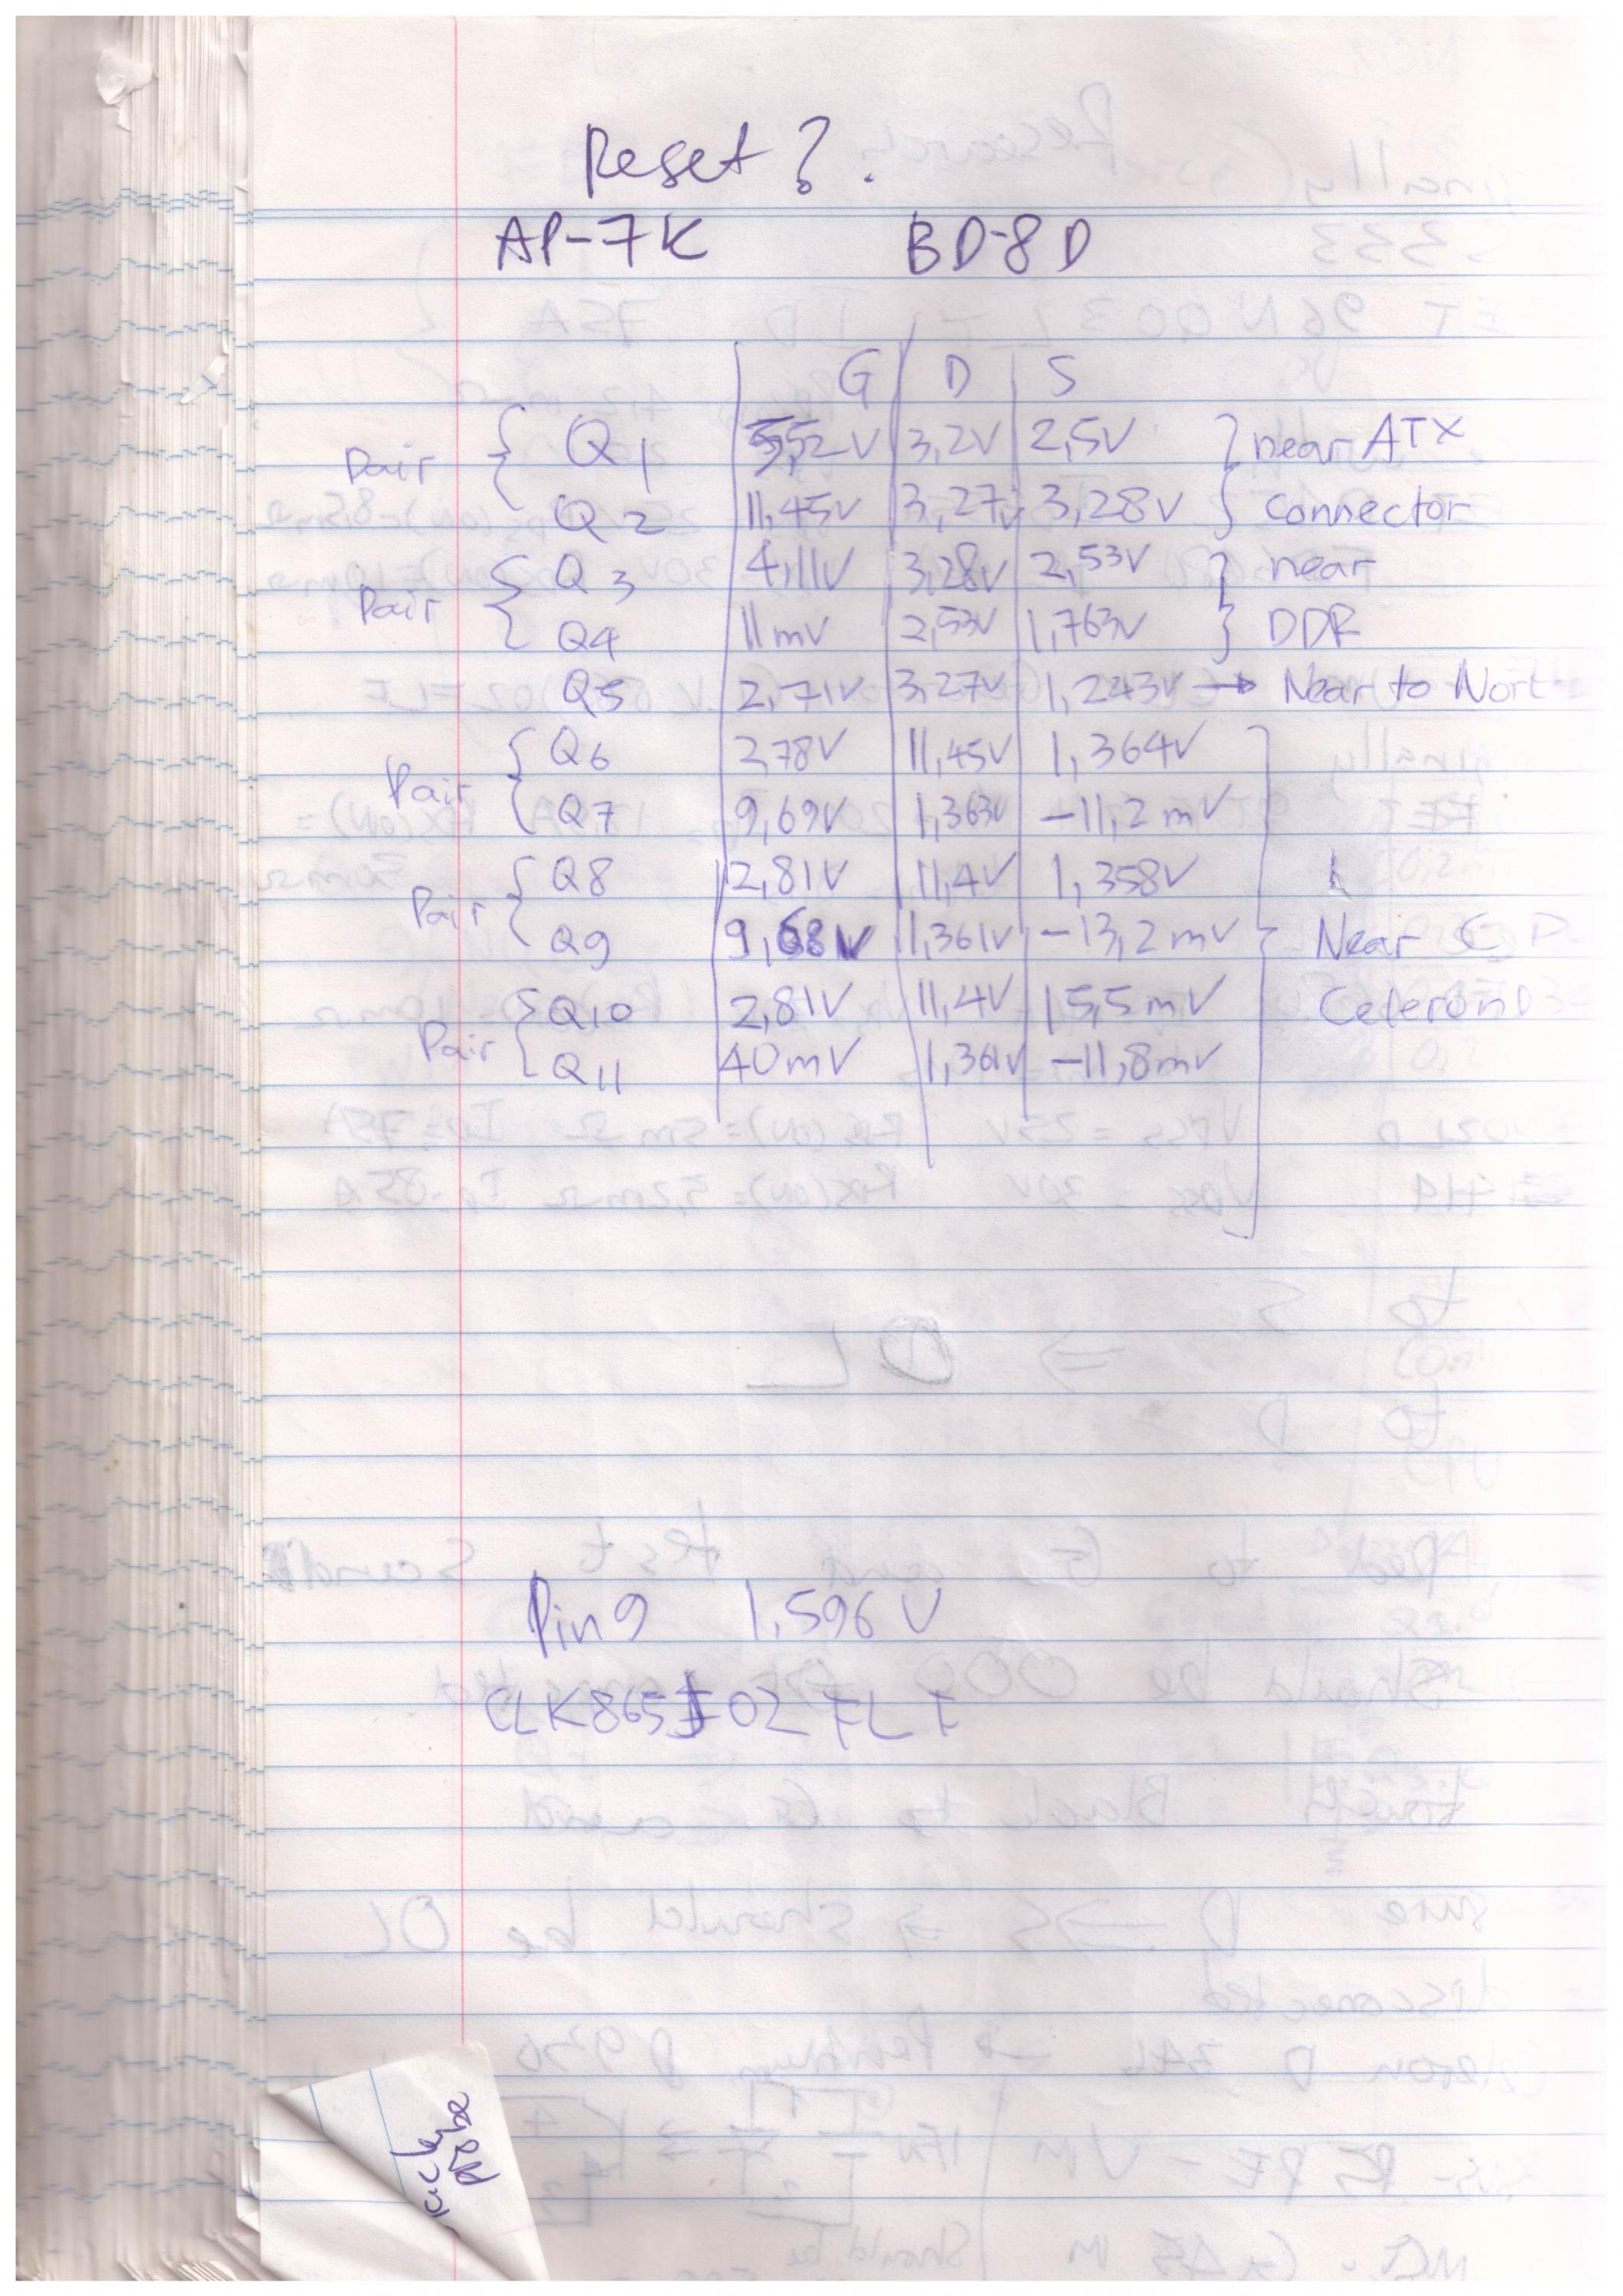 Reset?
AP-7K BD-8D
G D S
Pair { Q1 5,52V 3,2V 2,5V } near ATX
Q2 11,45V 3,27V 3,28V } connector
Pair { Q3 4,11V 3,28V 2,53V } near
Q4 11mV 2,53V 1,763V } DDR
Q5 2,71V 3,27V 1,243V → Near to Nort
Pair { Q6 2,78V 11,45V 1,364V
Q7 9,69V 1,363V -11,2mV
Pair { Q8 2,81V 11,4V 1,358V
Q9 9,68V 1,361V -13,2mV Near CP
Pair { Q10 2,81V 11,4V 15,5mV Celeron D 3
Q11 40mV 1,361V -11,8mV
Pin9 1,596V
probe